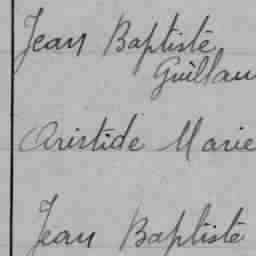 Jean Baptiste
Guillau
Aristide Marie
Jean Baptiste